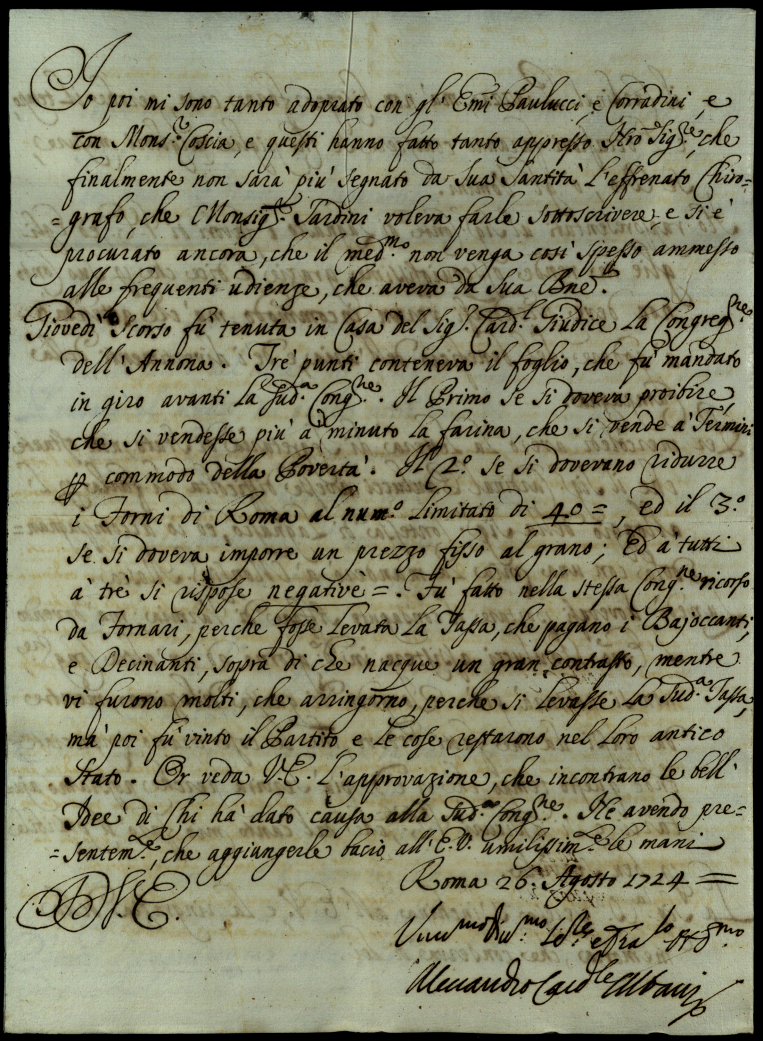 Io poi mi sono tanto adoprato con gl' Emi Paulucci, e Corradini, e
con Mons.r Coscia, e questi hanno fatto tanto appresso Nro Sig.re, che
finalmente non sarà più segnato da Sua Santità l'effrenato Chiro-
=grafo, che Monsig.r Sardini voleva farle sottoscrivere, e si è
procurato ancora, che il med.mo non venga così spesso ammesso
alle frequenti udienze, che aveva da Sua Bne.
Giovedì scorso fù tenuta in Casa del Sig.r Card.l Giudice la Congreg.ne
dell'Annona. Trè punti conteneva il foglio, che fù mandato
in giro avanti la sud.a Cong.ne. Il Primo se si doveva proibire
che si vendesse più à minuto la farina, che si vende à Termini
per commodo della Povertà. Il 2.o se si dovevano ridurre
i Forni di Roma al num.o limitato di 40=, ed il 3.o
se si doveva imporre un prezzo fisso al grano; Ed à tutti
à trè si rispose negativè=. Fù fatto nella stessa Cong.ne ricorso
da Fornari, perche fosse levata la Tassa, che pagano i Bajoccanti,
e Decinanti, sopra di che nacque un gran contrasto, mentre
vi furono molti, che arringorno, perche si levasse la sud.a Tassa,
mà poi fù vinto il Partito, e le cose restarono nel loro antico
stato. Or veda V.E. l'approvazione, che incontrano le bell'
Idee di Chi hà dato causa alla sud.a Cong.ne. Ne avendo pre-
=sentem.e, che aggiungerle bacio all'E.V. umilissim.e le mani
Roma 26. Agosto 1724=
D V.E.
Alessandro Card.le Albani